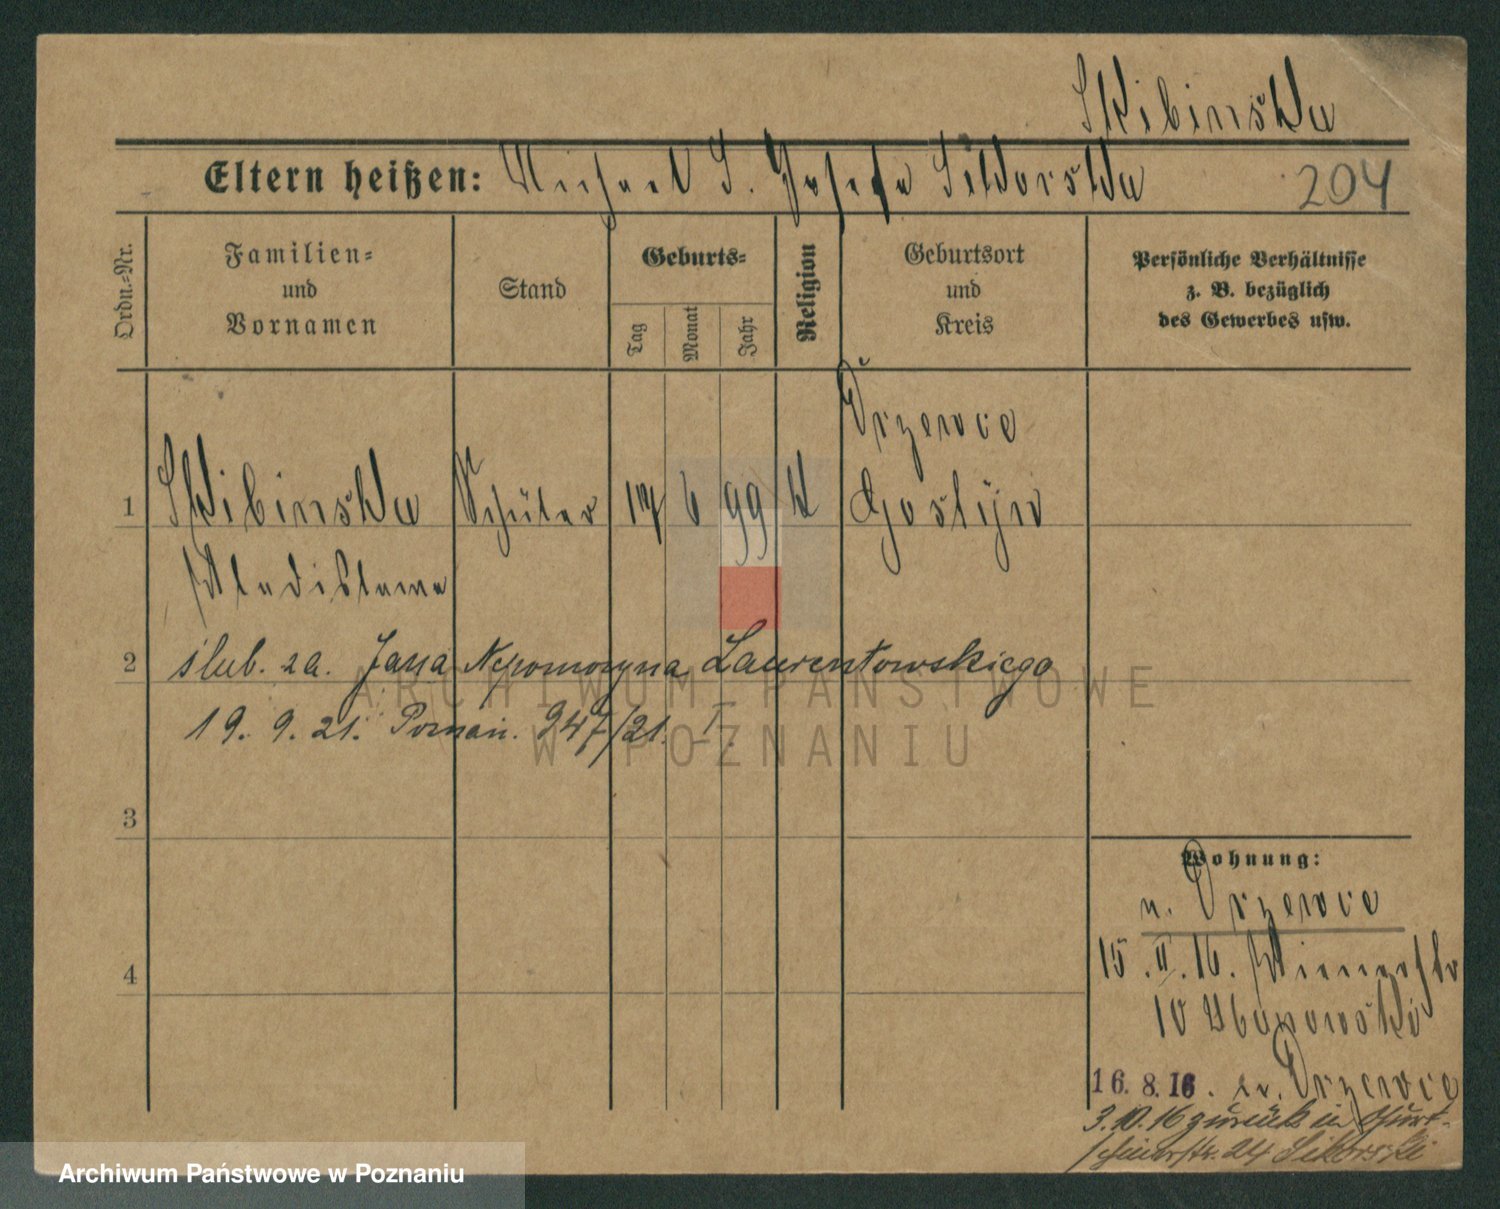 Skibinska
Eltern heißen: Michael S. Josefa Sikorska 204
Ordn.-Nr.
Familien-
und
Vornamen
Stand
Geburts-
Tag
Monat
Jahr
Religion
Geburtsort
und
Kreis
Persönliche Verhältnisse
z. B. bezüglich
des Gewerbes usw.
Drzewce
1 Skibinska Schüler 17 6 99 k Gostyn
Wladislawa
2 ślub. za. Jana Nepomucyna Laurentowskiego
19. 9. 21. Poznań. 947/21. I.
3
4
Wohnung:
n. Drzewce
15. II. 16. Wienerstr
10 Urbanowski
16. 8. 16. n. Drzewce
3. 10. 16 zurück in
str. 24 Sikorski
ARCHIWUM PAŃSTWOWE
W POZNANIU
Archiwum Państwowe w Poznaniu